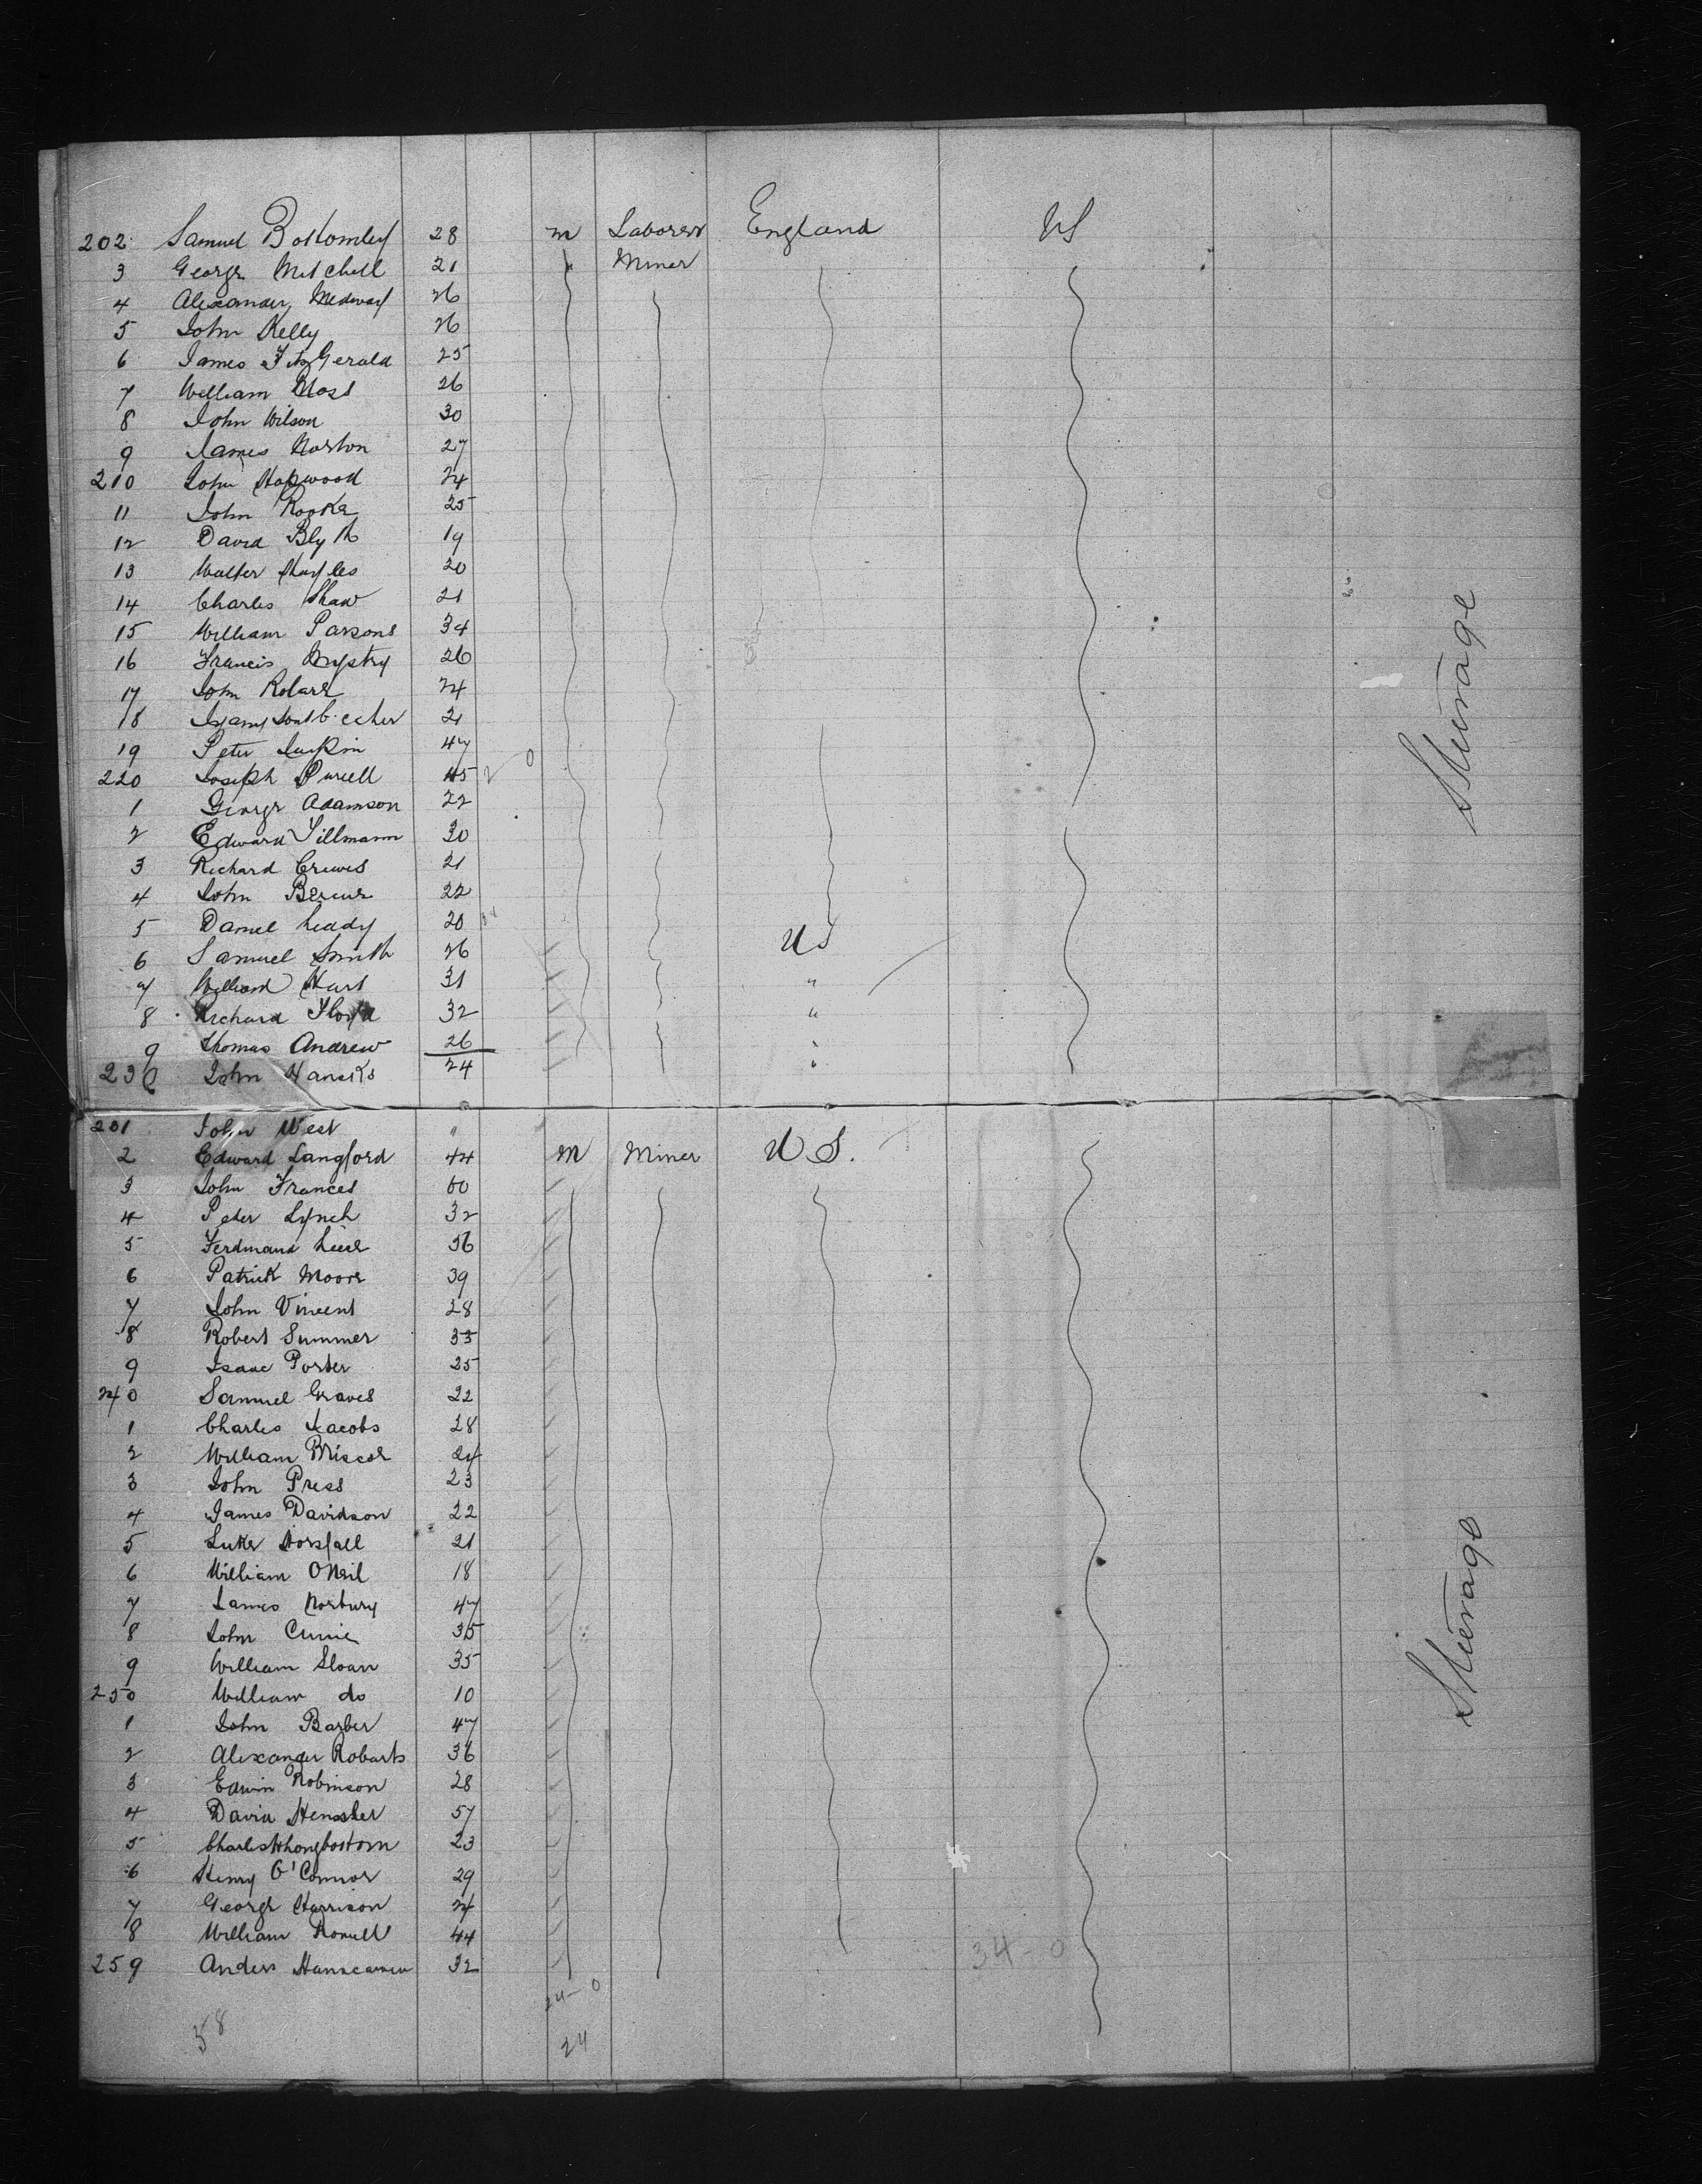 202 Samuel Bottomley 28 m Laborer England US
3 George Mitchell 21 " Miner
4 Alexander Medway 26
5 John Kelly 26
6 James FitzGerald 25
7 William Moss 26
8 John Wilson 30
9 James Norton 27
210 John Hopwood 24
11 John Rooke 25
12 David Blyth 19
13 Walter Sharples 20
14 Charles Shaw 21
15 William Parsons 34
16 Francis 26
17 John 24
18 21
19 Peter 47
220 Joseph Purcell 45 2 0
1 George Adamson 22
2 Edward Tillmann 30
3 Richard Crewes 21
4 John 22
5 Daniel Leddy 20
6 Samuel Smith 26 US
7 William Hart 31 "
8 Richard Floyd 32 "
9 Thomas Andrew 26 "
230 John Hancks 24 "
Steerage
231 John West "
2 Edward Langford 44 m Miner U S.
3 John Frances 60
4 Peter Lynch 32
5 Ferdinand 36
6 Patrick Moore 39
7 John Vincent 28
8 Robert Summer 33
9 Isaac Porter 25
240 Samuel Graves 22
1 Charles Jacobs 28
2 William Briscoe 24
3 John Press 23
4 James Davidson 22
5 Luke Horsfall 21
6 William ONeil 18
7 James Norbury 47
8 John Currie 35
9 William Sloan 35
250 William do 10
1 John Barber 47
2 Alexander Robarts 36
3 Edwin Robinson 28
4 David Hensher 57
5 Charles 23
6 Henry O'Connor 29
7 George Harrison 24
8 William 44
259 Anders 32
Steerage
34-0
24-0
58
24